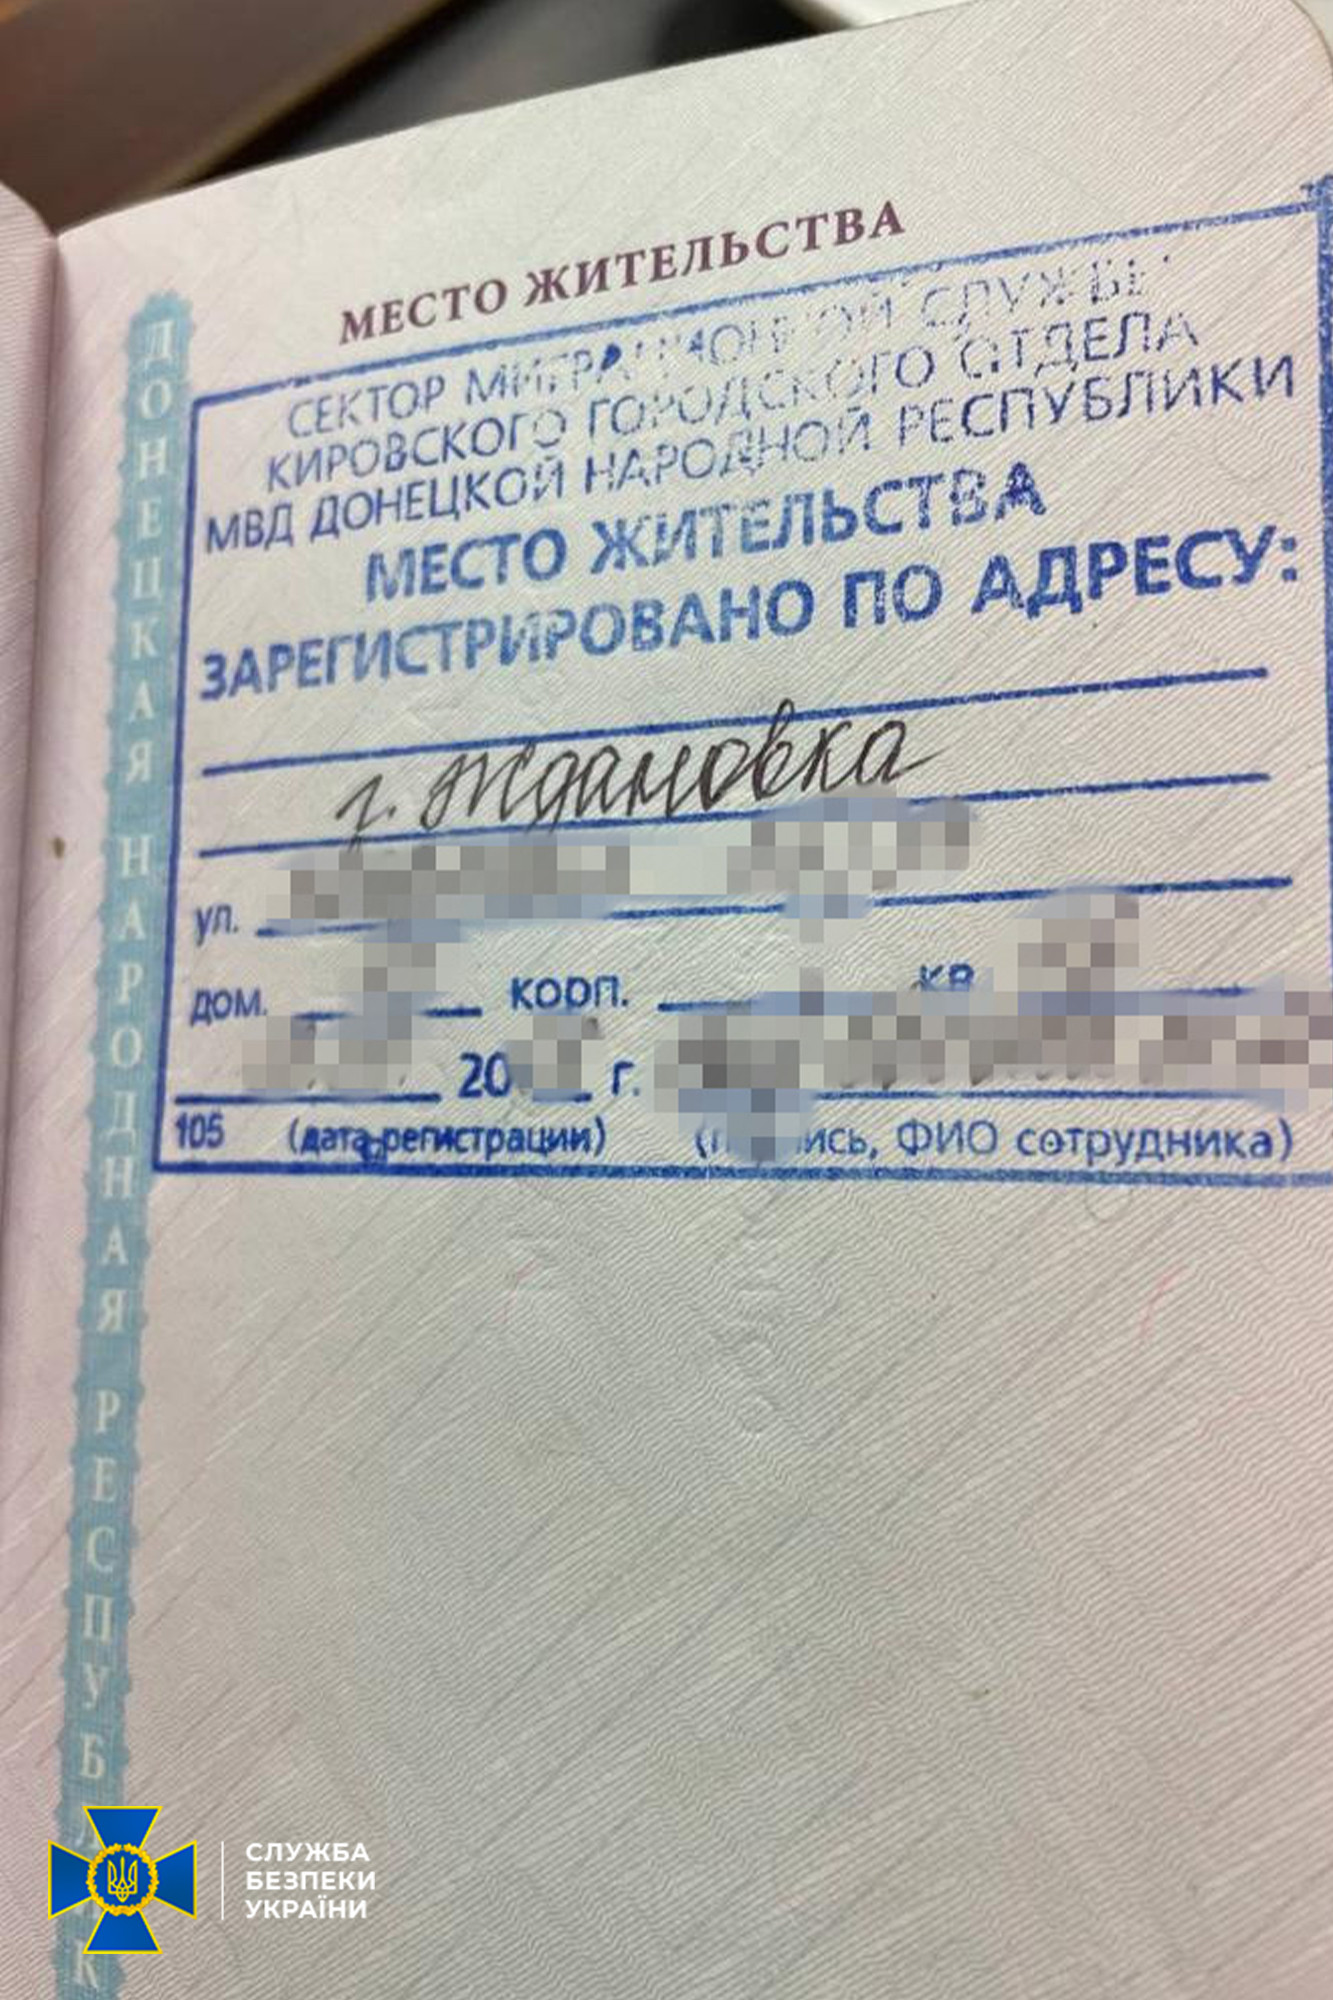 МЕСТО ЖИТЕЛЬСТВА
СЕКТОР МИГРАЦИОННОЙ СЛУЖБЫ
КИРОВСКОГО ГОРОДСКОГО ОТДЕЛА
МВД ДОНЕЦКОЙ НАРОДНОЙ РЕСПУБЛИКИ
МЕСТО ЖИТЕЛЬСТВА
ЗАРЕГИСТРИРОВАНО ПО АДРЕСУ:
г. Ждановка
ул.
дом. корп. кв
20 г.
105 (дата регистрации) ФИО сотрудника)
ДОНЕЦКАЯ НАРОДНАЯ
СЛУЖБА
БЕЗПЕКИ
УКРАЇНИ